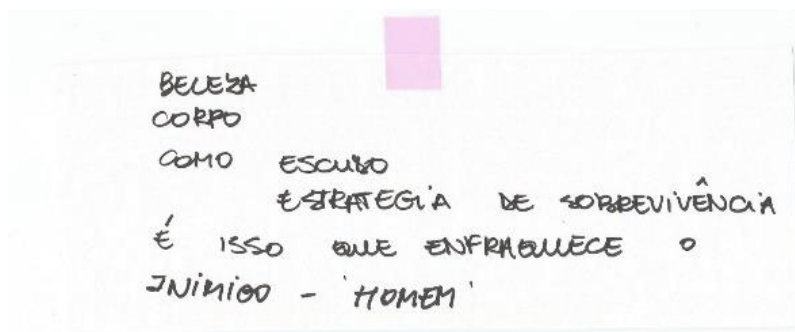 BELEZA
CORPO
COMO ESCUDO
ESTRATEGIA DE SOBREVIVÊNCIA
É ISSO QUE ENFRAQUECE O
INIMIGO - 'HOMEM'